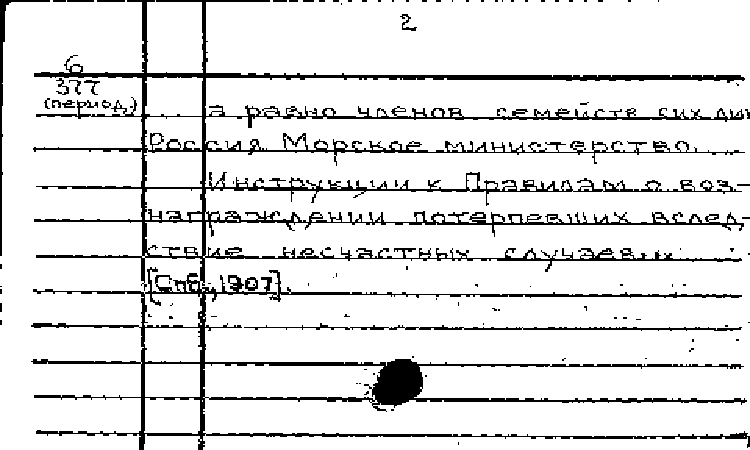 2
6
377
(период.)
... а равно членов семейств сих лиц
Россия. Морское министерство.
Инструкции к Правилам о воз-
награждении потерпевших вслед-
ствие несчастных случаев...
[Спб., 1907].